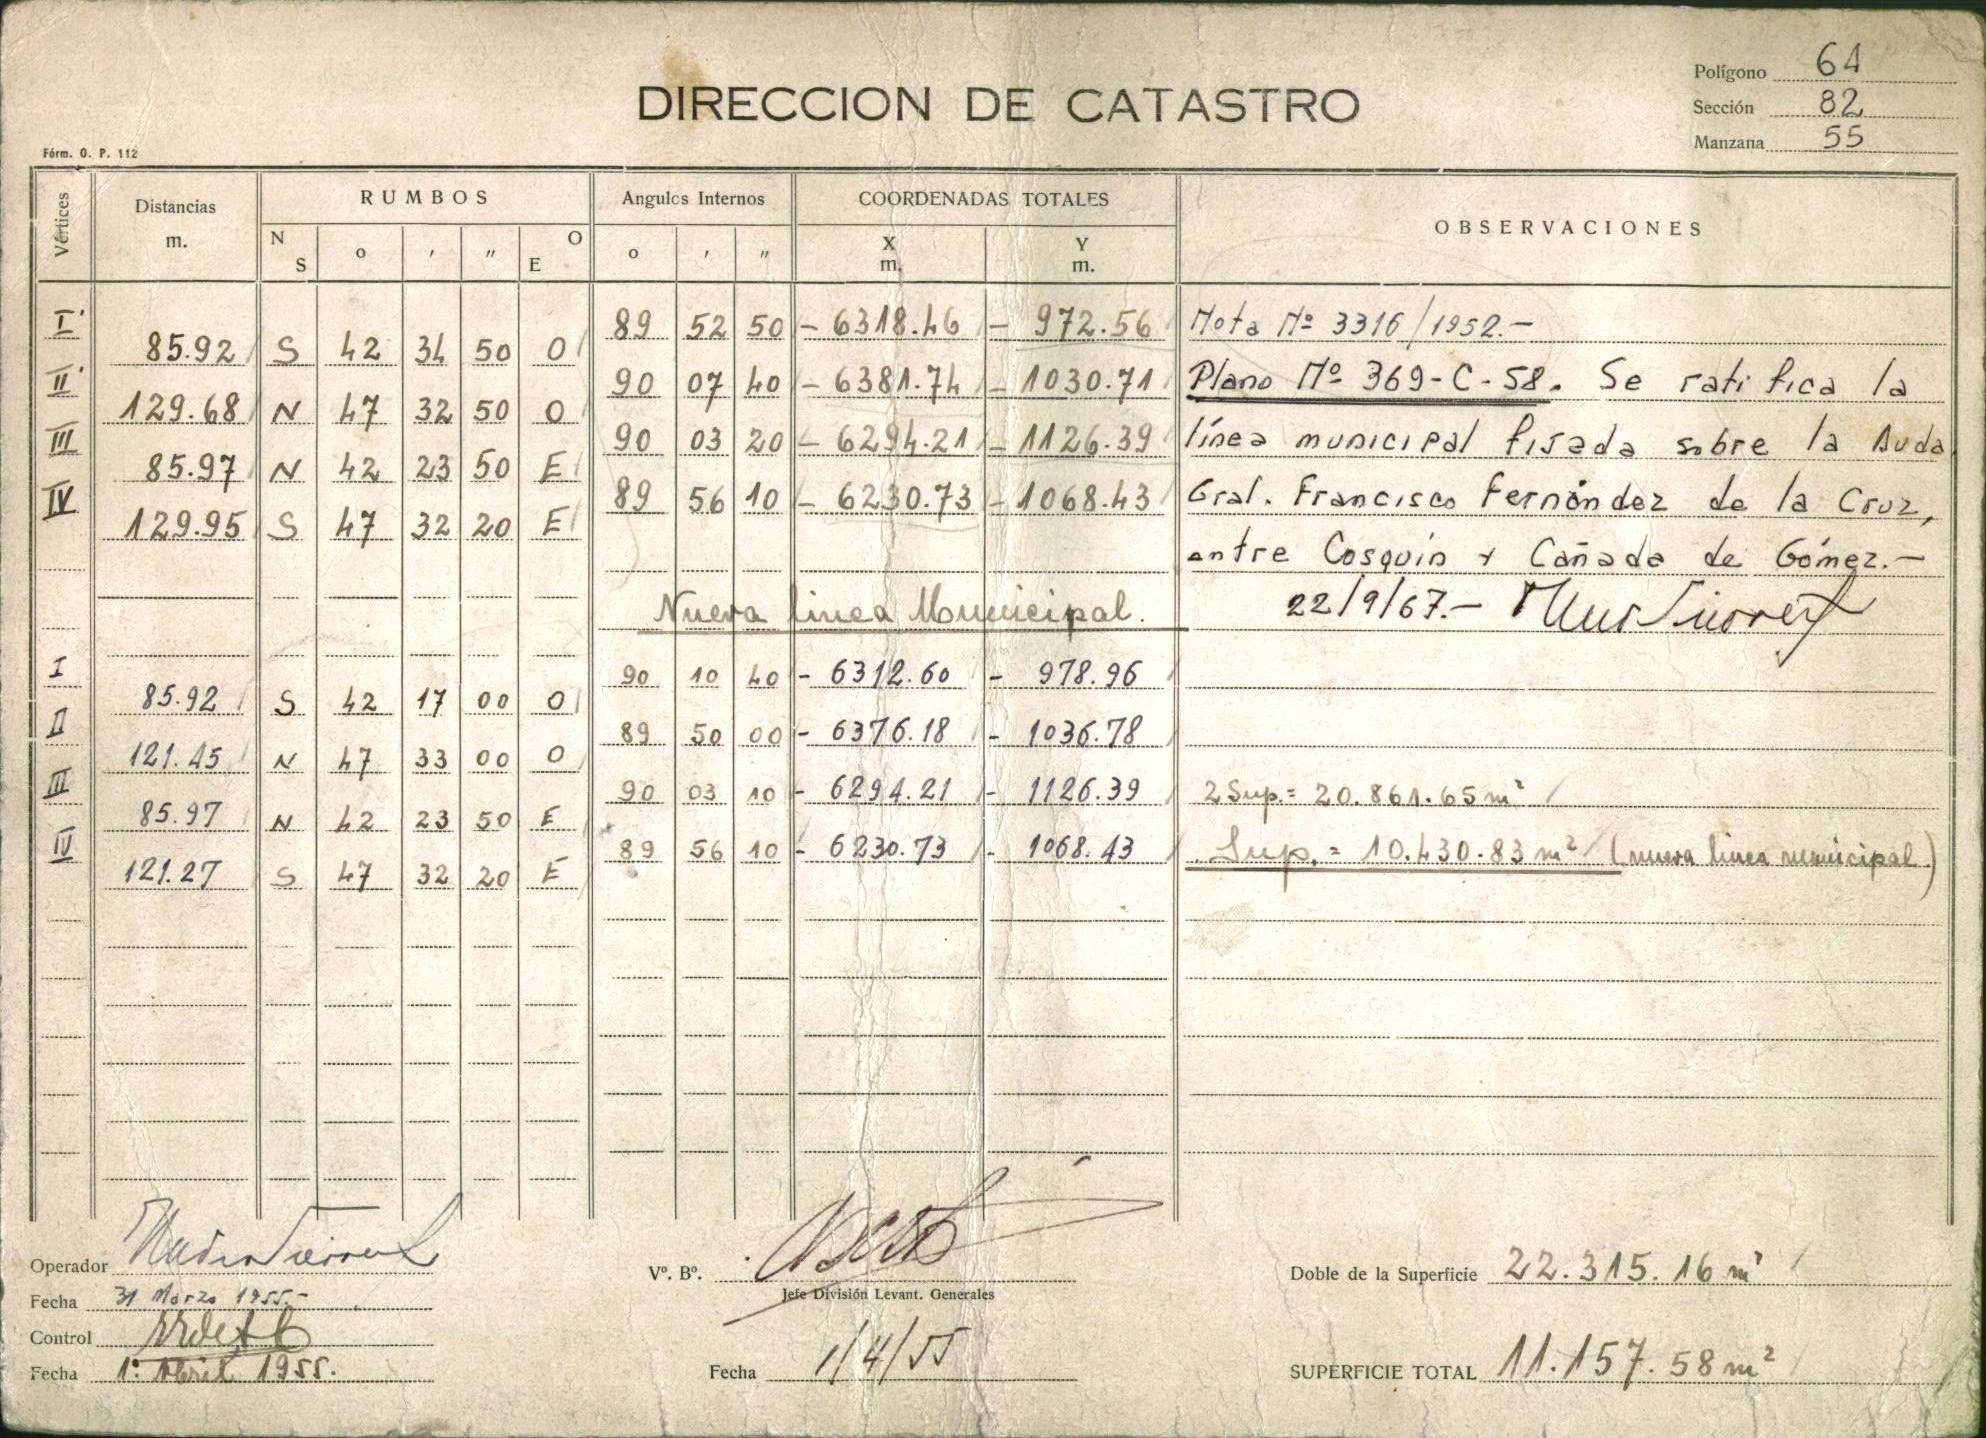 Polígono 64
DIRECCION DE CATASTRO
Sección 82
Manzana 55
Fórm. O. P. 112
Vértices Distancias m. RUMBOS Angulos Internos COORDENADAS TOTALES OBSERVACIONES
N S ° ' " O E ° ' " X m. Y m.
I' 89 52 50 - 6318.46 - 972.56 Nota Nº 3316/1952.-
85.92 S 42 34 50 O
II' 90 07 40 - 6381.74 - 1030.71 Plano Nº 369-C-58. Se ratifica la
129.68 N 47 32 50 O
III 90 03 20 - 6294.21 - 1126.39 línea municipal fijada sobre la Avda.
85.97 N 42 23 50 E
IV 89 56 10 - 6230.73 - 1068.43 Gral. Francisco Fernández de la Cruz,
129.95 S 47 32 20 E
entre Cosquín y Cañada de Gómez.-
Nueva linea Municipal. 22/9/67.-
I 90 10 40 - 6312.60 - 978.96
85.92 S 42 17 00 O
II 89 50 00 - 6376.18 - 1036.78
121.45 N 47 33 00 O
III 90 03 10 - 6294.21 - 1126.39 2 Sup. = 20.861.65 m²
85.97 N 42 23 50 E
IV 89 56 10 - 6230.73 - 1068.43 Sup. = 10.430.83 m² (nueva linea municipal)
121.27 S 47 32 20 E
Operador
Vº. Bº.
Doble de la Superficie 22.315.16 m²
Jefe División Levant. Generales
Fecha 31 Marzo 1955.-
Control
Fecha 1º. Abril 1955.
Fecha 1/4/55
SUPERFICIE TOTAL 11.157.58 m²